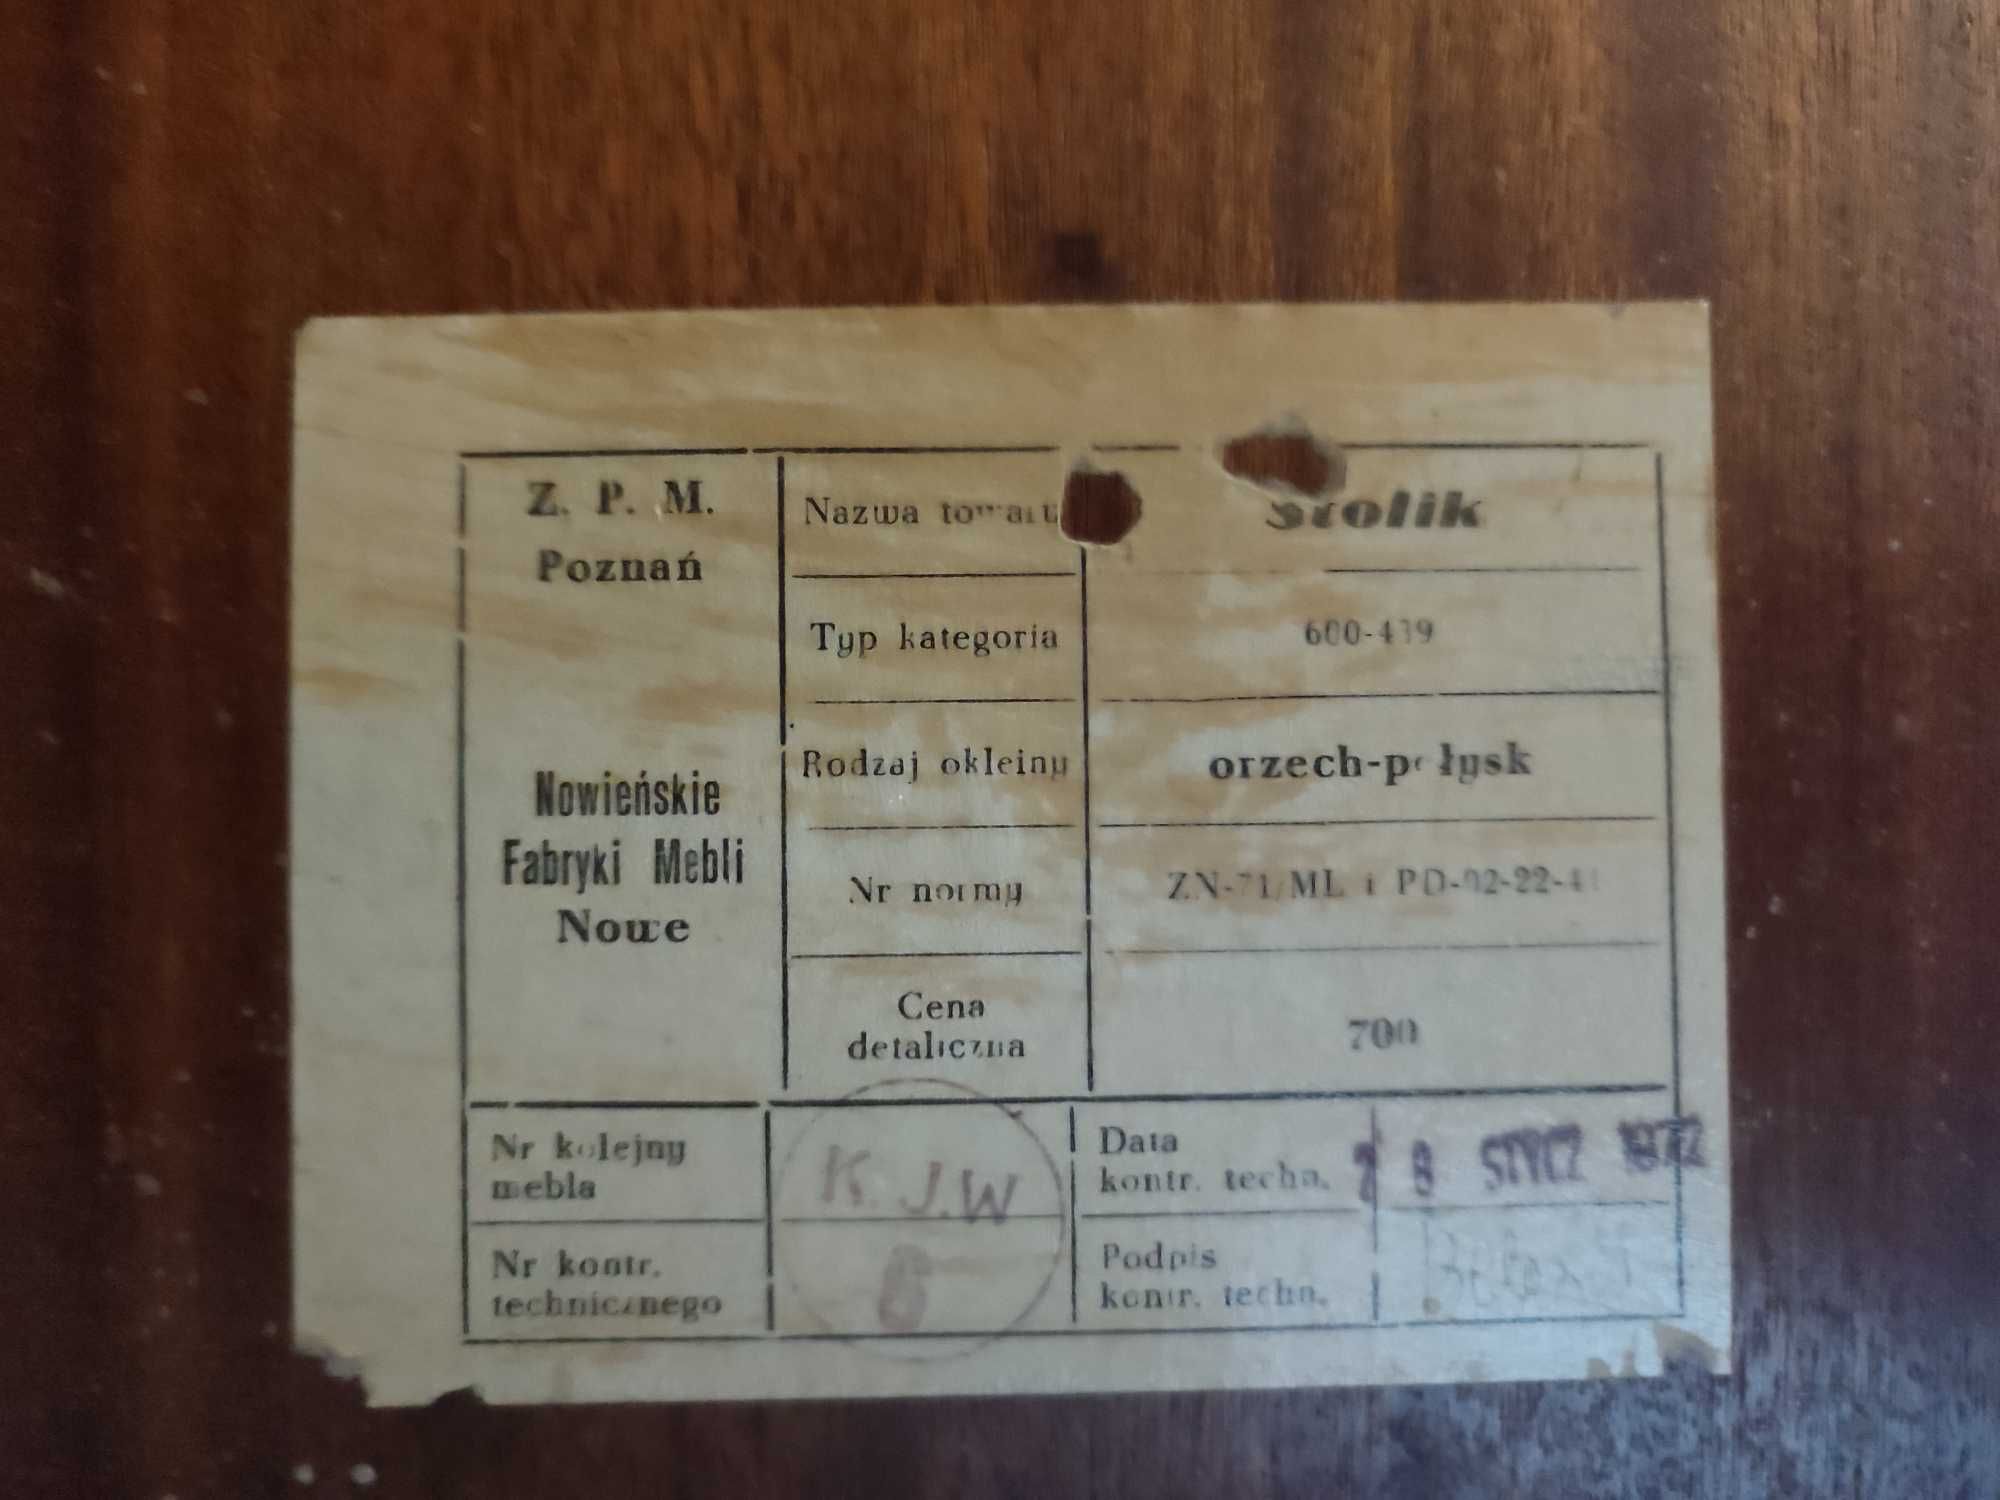 Z. P. M.
Poznań
Nowieńskie
Fabryki Mebli
Nowe
Nazwa towaru
Stolik
Typ kategoria
600-439
Rodzaj okleiny
orzech-połysk
Nr normy
ZN-71/ML i PD-02-22-41
Cena
detaliczna
700
Nr kolejny
mebla
K.J.W
6
Nr kontr.
technicznego
Data
kontr. techn.
2 8 STYCZ 1972
Podpis
kontr. techn.